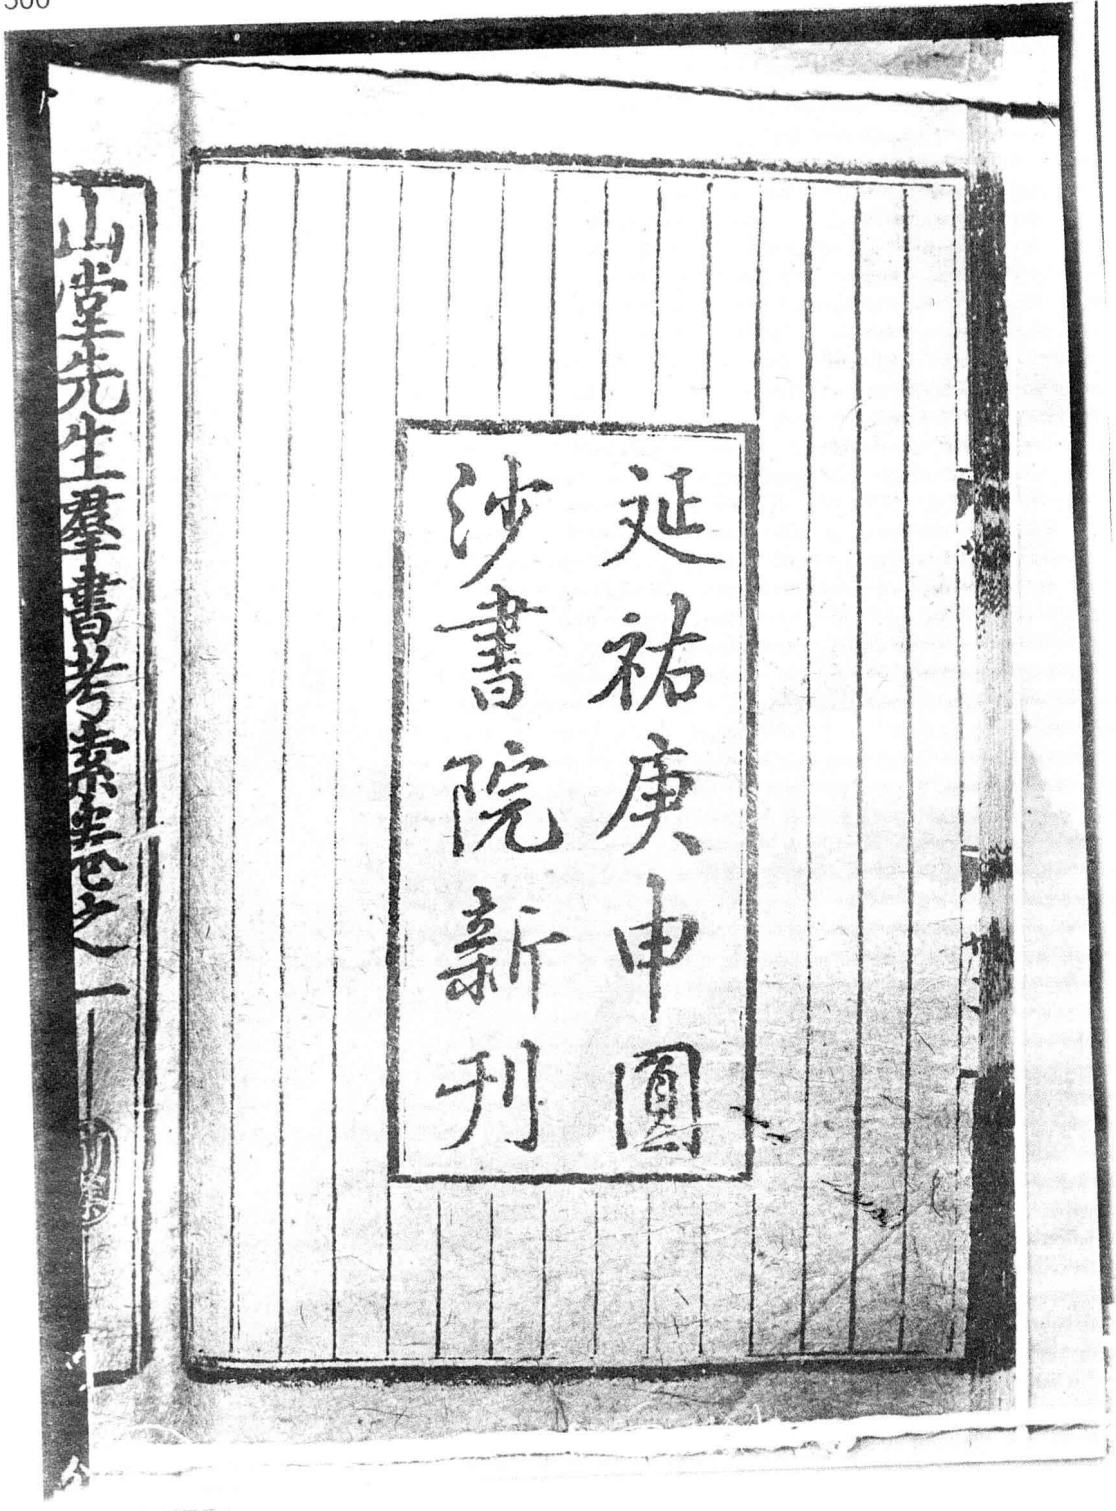 500
延祐庚申圓
沙書院新刊
山堂先生羣書考索卷之一